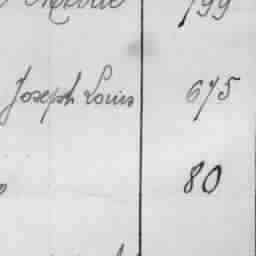 799
Joseph Louis 675
80